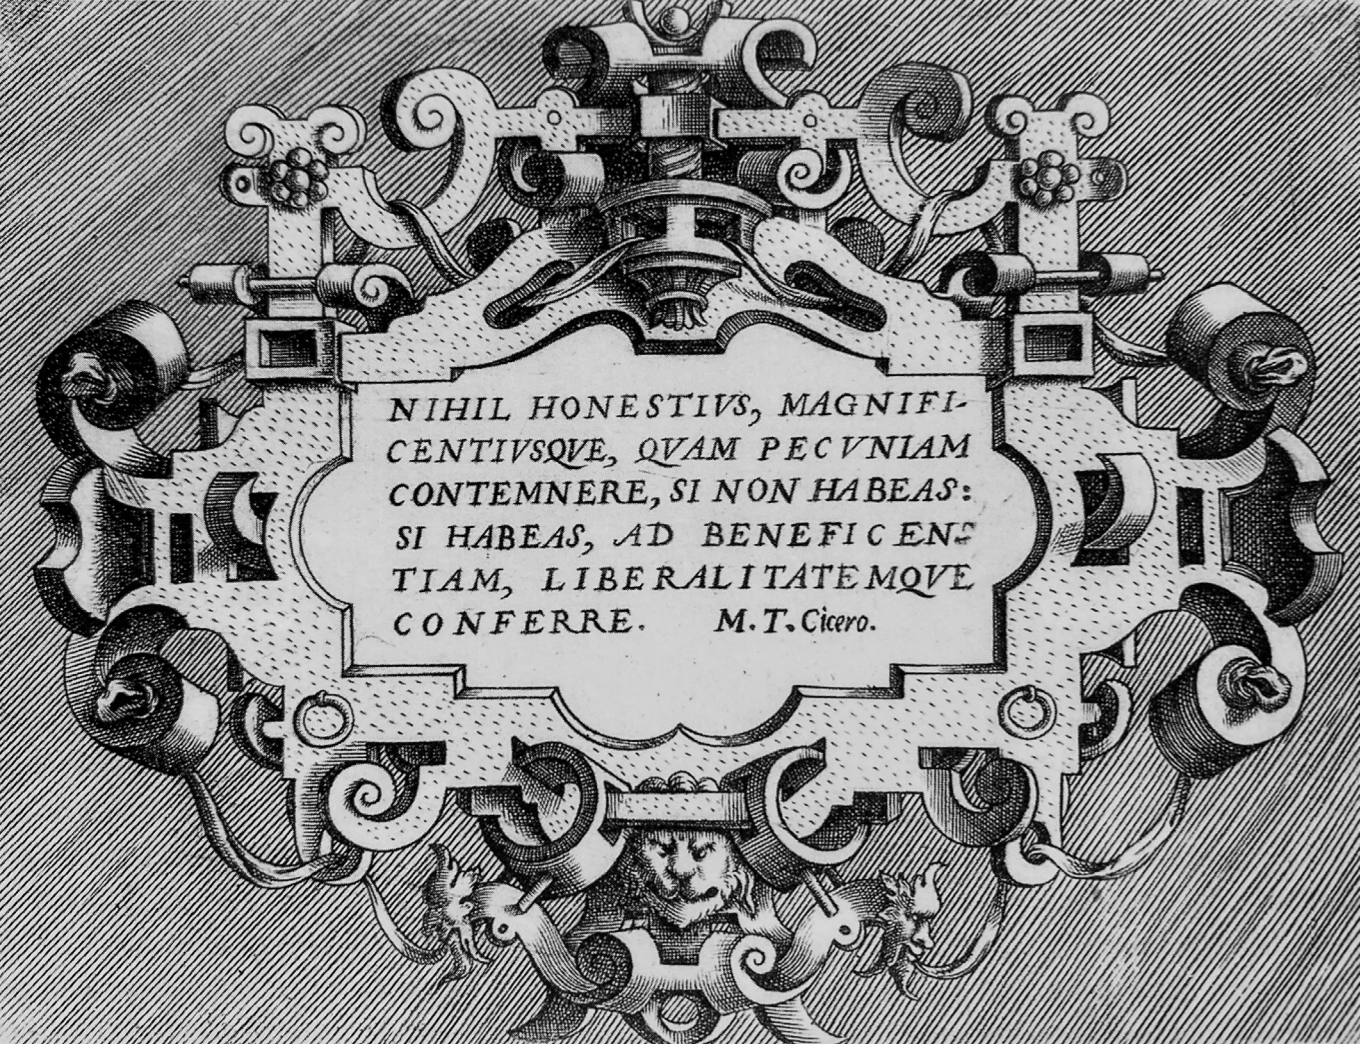 NIHIL HONESTIVS, MAGNIFI-
CENTIVSQVE, QVAM PECVNIAM
CONTEMNERE, SI NON HABEAS:
SI HABEAS, AD BENEFICEN-
TIAM, LIBERALITATEMQVE
CONFERRE. M. T. Cicero.